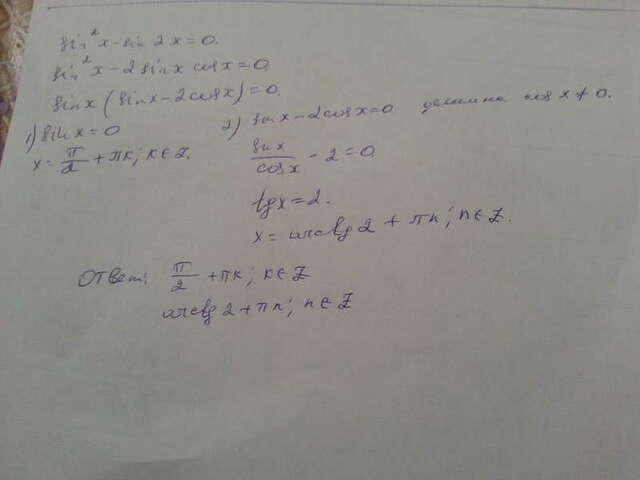 sin²x - sin 2x = 0.
sin²x - 2 sinx cosx = 0.
sinx (sinx - 2cosx) = 0.
1) sinx = 0
x = π/2 + πk; k ∈ Z.
2) sinx - 2cosx = 0 делим на cos x ≠ 0.
sinx/cosx - 2 = 0.
tgx = 2.
x = arctg 2 + πn; n ∈ Z.
Ответ: π/2 + πk; k ∈ Z
arctg 2 + πn; n ∈ Z